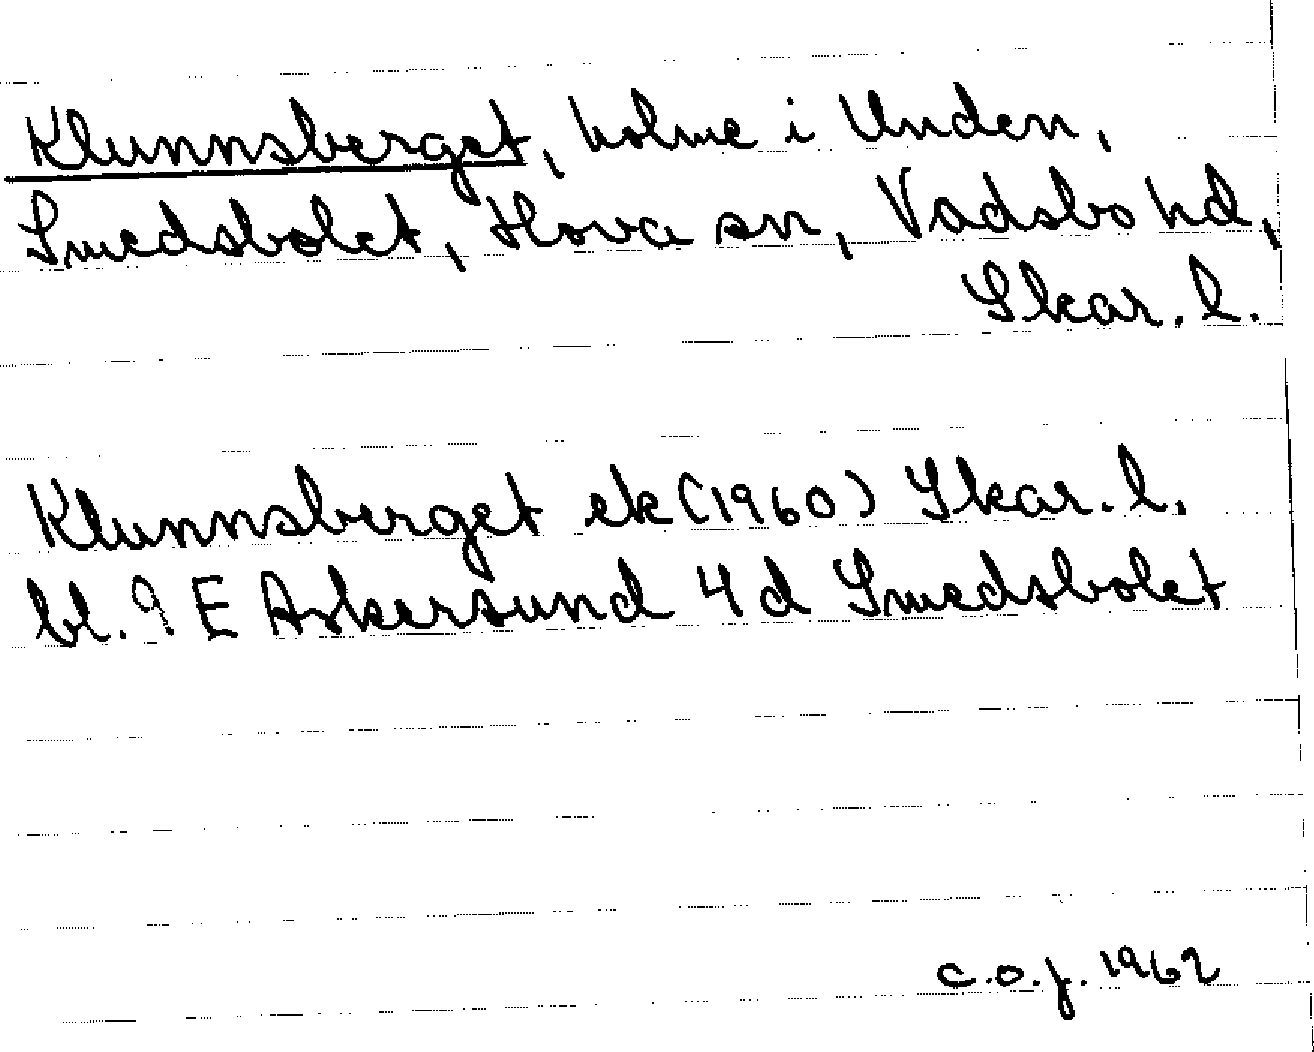 Klunnsberget, holme i Unden,
Smedsbolet, Hova sn, Vadsbo hd,
Skar. l.
Klunnsberget ek (1960) Skar. l.
bl. 9 E Askersund 4 d Smedsbolet
c.o.j. 1962